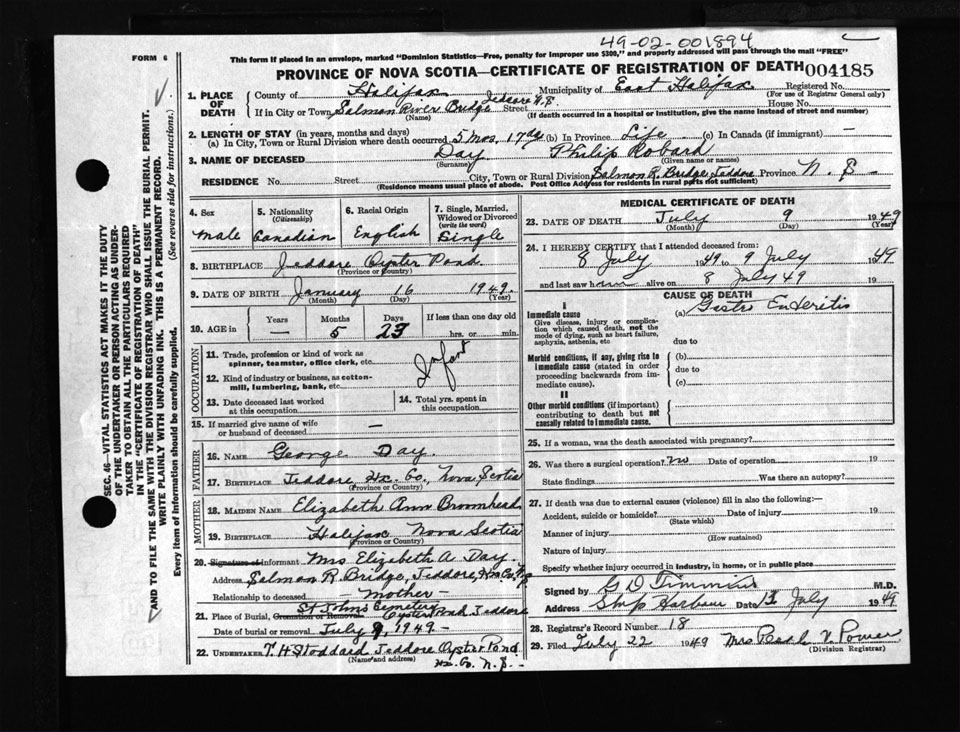 49-02-001894
FORM 6
This form if placed in an envelope, marked "Dominion Statistics—Free, penalty for improper use $300," and properly addressed will pass through the mail "FREE"
PROVINCE OF NOVA SCOTIA—CERTIFICATE OF REGISTRATION OF DEATH 004185
SEC. 46—VITAL STATISTICS ACT MAKES IT THE DUTY
OF THE UNDERTAKER OR PERSON ACTING AS UNDER-
TAKER TO OBTAIN ALL THE PARTICULARS REQUIRED
IN THE "CERTIFICATE OF REGISTRATION OF DEATH"
AND TO FILE THE SAME WITH THE DIVISION REGISTRAR WHO SHALL ISSUE THE BURIAL PERMIT.
WRITE PLAINLY WITH UNFADING INK. THIS IS A PERMANENT RECORD.
Every item of Information should be carefully supplied. (See reverse side for instructions.)
1. PLACE OF DEATH County of Halifax Municipality of East Halifax Registered No.
(For use of Registrar General only)
If in City or Town Salmon River Bridge Jeddore N.S. Street House No.
(Name) (If death occurred in a hospital or institution, give the name instead of street and number)
2. LENGTH OF STAY (in years, months and days)
(a) In City, Town or Rural Division where death occurred 5 Mos. 17 dys (b) In Province Life (c) In Canada (if immigrant) —
3. NAME OF DECEASED Day Philip Robard
(Surname) (Given name or names)
RESIDENCE No. Street City, Town or Rural Division Salmon R. Bridge, Jeddore Province N. S
(Residence means usual place of abode. Post Office Address for residents in rural parts not sufficient)
4. Sex male
5. Nationality (Citizenship) Canadian
6. Racial Origin English
7. Single, Married, Widowed or Divorced (write the word) Single
8. BIRTHPLACE Jeddore Oyster Pond
(Province or Country)
9. DATE OF BIRTH January 16 1949
(Month) (Day) (Year)
10. AGE in Years — Months 5 Days 23 If less than one day old hrs. or min.
OCCUPATION
11. Trade, profession or kind of work as spinner, teamster, office clerk, etc. Infant
12. Kind of industry or business, as cotton-mill, lumbering, bank, etc.
13. Date deceased last worked at this occupation
14. Total yrs. spent in this occupation
15. If married give name of wife or husband of deceased —
FATHER
16. NAME George Day
17. BIRTHPLACE Jeddore, Hx. Co., Nova Scotia
(Province or Country)
MOTHER
18. MAIDEN NAME Elizabeth Ann Bromhead
19. BIRTHPLACE Halifax Nova Scotia
(Province or Country)
20. Signature of Informant Mrs Elizabeth A. Day
Address Salmon R. Bridge, Jeddore, Hx. Co. N.S
Relationship to deceased Mother
21. Place of Burial, Cremation or Removal St Johns Cemetery Oyster Pond Jeddore
Date of burial or removal July 9, 1949
22. UNDERTAKER T. H Stoddard Jeddore Oyster Pond
(Name and address) Hx. Co. N. S.
MEDICAL CERTIFICATE OF DEATH
23. DATE OF DEATH July 9 1949
(Month) (Day) (Year)
24. I HEREBY CERTIFY that I attended deceased from:
8 July 1949 to 9 July 1949
and last saw him alive on 8 July 49
CAUSE OF DEATH
I
Immediate cause (a) Gastro Enteritis
Give disease, injury or complication which caused death, not the mode of dying, such as heart failure, asphyxia, asthenia, etc
due to
Morbid conditions, if any, giving rise to immediate cause (stated in order proceeding backwards from immediate cause).
(b)
due to
(c)
II
Other morbid conditions (if important) contributing to death but not causally related to immediate cause.
25. If a woman, was the death associated with pregnancy?
26. Was there a surgical operation? no Date of operation 19
State findings Was there an autopsy?
27. If death was due to external causes (violence) fill in also the following:—
Accident, suicide or homicide? Date of injury 19
(State which)
Manner of injury
(How sustained)
Nature of injury
Specify whether injury occurred in Industry, in home, or in public place
Signed by G D Timmins M.D.
Address Ship Harbour Date 12 July 1949
28. Registrar's Record Number 18
29. Filed July 22 1949 Mrs Pearl V. Power
(Division Registrar)